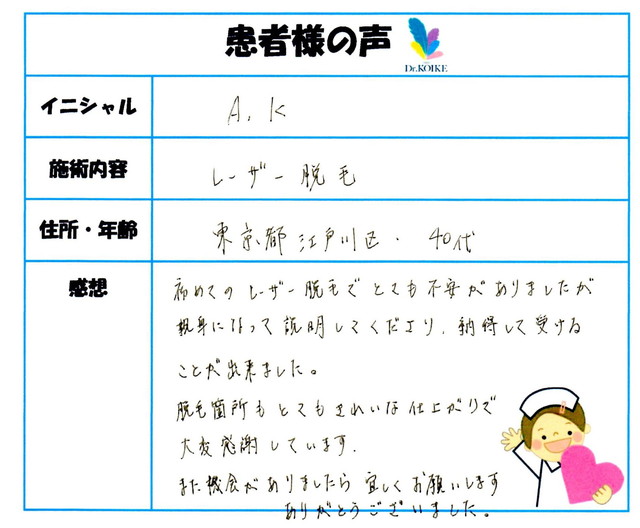 患者様の声
Dr.KOIKE
イニシャル A.K
施術内容 レーザー脱毛
住所・年齢 東京都江戸川区・40代
感想
初めてのレーザー脱毛でとても不安がありましたが
親身になって説明してくださり、納得して受ける
ことが出来ました。
脱毛箇所もとてもきれいな仕上がりで
大変感謝しています。
また機会がありましたら宜しくお願いします
ありがとうございました。